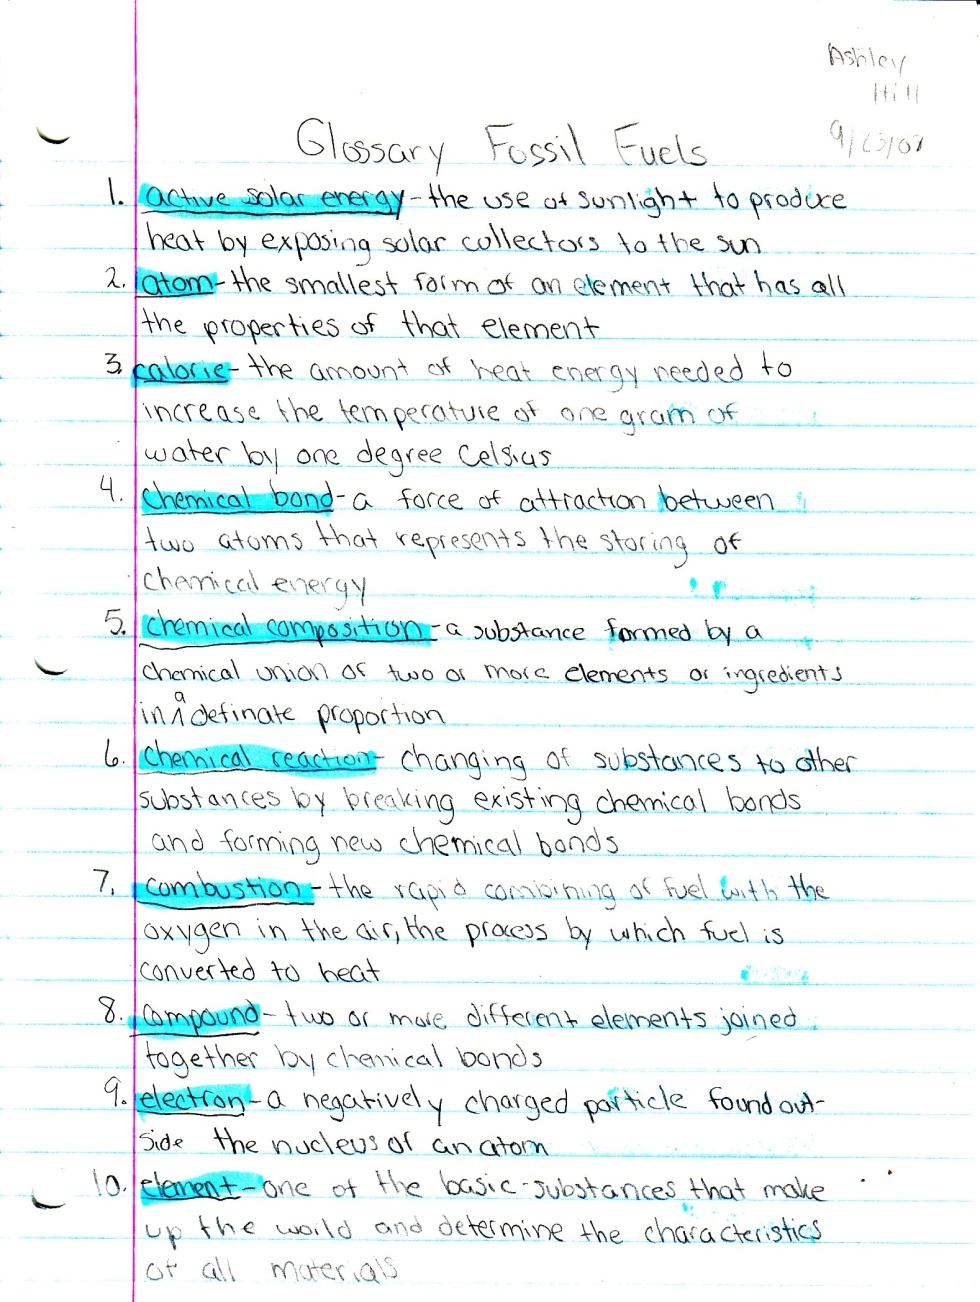 Ashley
Hill
Glossary Fossil Fuels
1. active solar energy - the use of sunlight to produce
heat by exposing solar collectors to the sun
2. atom - the smallest form of an element that has all
the properties of that element
3. calorie - the amount of heat energy needed to
increase the temperature of one gram of
water by one degree Celsius
4. Chemical bond - a force of attraction between
two atoms that represents the storing of
chemical energy
5. Chemical composition - a substance formed by a
chemical union of two or more elements or ingredients
in a definate proportion
6. Chemical reaction - changing of substances to other
substances by breaking existing chemical bonds
and forming new chemical bonds
7. combustion - the rapid combining of fuel with the
oxygen in the air, the process by which fuel is
converted to heat
8. compound - two or more different elements joined
together by chemical bonds
9. electron - a negatively charged particle found out-
side the nucleus of an atom
10. element - one of the basic substances that make
up the world and determine the characteristics
of all materials